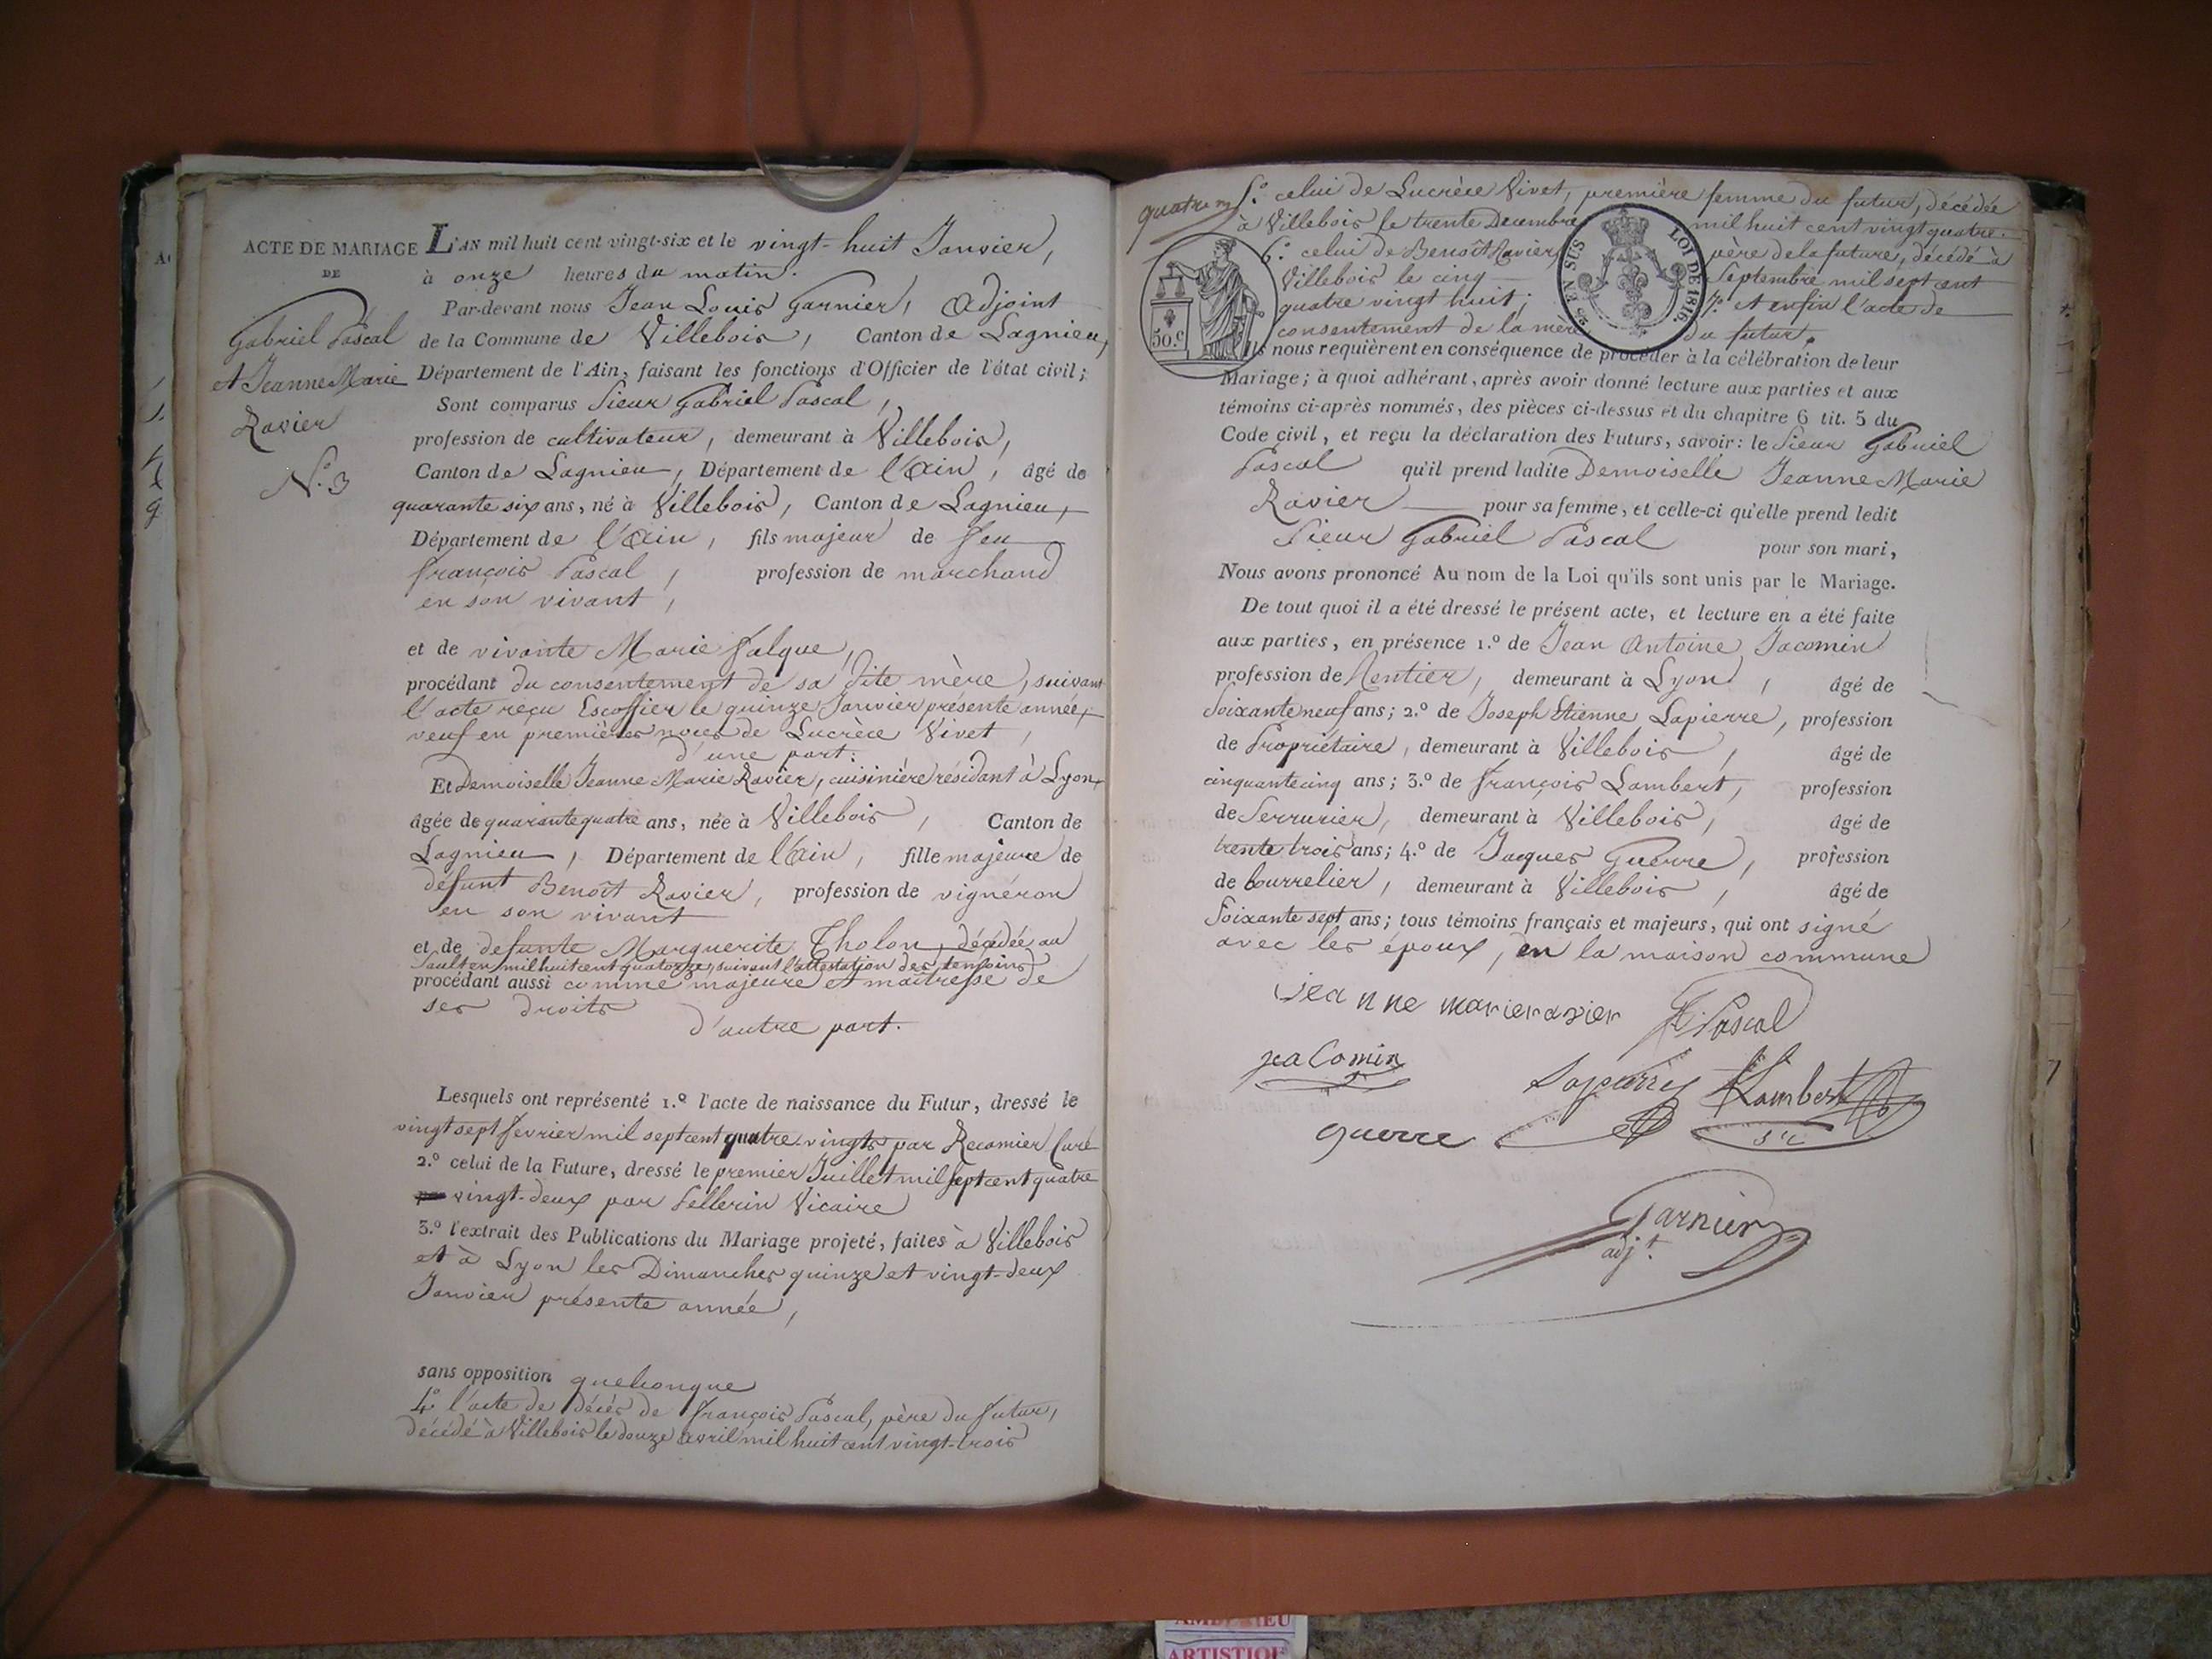 ACTE DE MARIAGE
DE
Gabriel Pascal
et Jeanne Marie
Ravier
N.º 3
L'AN mil huit cent vingt-six et le vingt-huit Janvier,
à onze heures du matin.
Par-devant nous Jean Louis Garnier, Adjoint
de la Commune de Villebois, Canton de Lagnieu,
Département de l'Ain, faisant les fonctions d'Officier de l'état civil;
Sont comparus Sieur Gabriel Pascal,
profession de cultivateur, demeurant à Villebois,
Canton de Lagnieu, Département de l'Ain, âgé de
quarante six ans, né à Villebois, Canton de Lagnieu,
Département de l'Ain, fils majeur de feu
françois Pascal, profession de marchand
en son vivant,
et de vivante Marie falque,
procédant du consentement de sa dite mère, suivant
l'acte reçu Escoffier le quinze Janvier présente année,
veuf en premières noces de Lucrèce Vivet,
d'une part:
Et Demoiselle Jeanne Marie Ravier, cuisinière résidant à Lyon,
âgée de quarante quatre ans, née à Villebois, Canton de
Lagnieu, Département de l'Ain, fille majeure de
défunt Benoît Ravier, profession de vignéron
en son vivant
et de defunte Marguerite Tholon, décédée au
Sault en mil huit cent quatorze, suivant l'attestation des temoins
procédant aussi comme majeure et maitresse de
ses droits
d'autre part.
Lesquels ont représenté 1.º l'acte de naissance du Futur, dressé le
vingt sept fevrier mil sept cent quatre vingts par Recamier Curé
2.º celui de la Future, dressé le premier Juillet mil sept cent quatre
vingt-deux par Pellerin Vicaire
3.º l'extrait des Publications du Mariage projeté, faites à Villebois
et à Lyon les Dimanches quinze et vingt-deux
Janvier présente année,
sans opposition quelconque
4.º l'acte de décès de françois Pascal, père du futur,
décédé à Villebois le douze avril mil huit cent vingt-trois
quatre
5.º celui de Lucrèce Vivet, première femme du futur, décédée
à Villebois le trente Decembre mil huit cent vingt quatre.
6.º celui de Benoît Ravier, père de la future, décédé à
Villebois le cinq Septembre mil sept cent
quatre vingt huit; 7.º et enfin l'acte de
consentement de la mère du futur.
50.c
EN SUS
LOI DE 1816.
Ils nous requièrent en conséquence de procéder à la célébration de leur
Mariage; à quoi adhérant, après avoir donné lecture aux parties et aux
témoins ci-après nommés, des pièces ci-dessus et du chapitre 6 tit. 5 du
Code civil, et reçu la déclaration des Futurs, savoir: le Sieur Gabriel
Pascal qu'il prend ladite Demoiselle Jeanne Marie
Ravier pour sa femme, et celle-ci qu'elle prend ledit
Sieur Gabriel Pascal pour son mari,
Nous avons prononcé Au nom de la Loi qu'ils sont unis par le Mariage.
De tout quoi il a été dressé le présent acte, et lecture en a été faite
aux parties, en présence 1.º de Jean Antoine Jacomin
profession de Rentier, demeurant à Lyon, âgé de
Soixante neuf ans; 2.º de Joseph Etienne Lapierre, profession
de Propriétaire, demeurant à Villebois, âgé de
cinquante cinq ans; 3.º de françois Lambert, profession
de Serrurier, demeurant à Villebois, âgé de
trente trois ans; 4.º de Jacques Guerre, profession
de bourrelier, demeurant à Villebois, âgé de
Soixante sept ans; tous témoins français et majeurs, qui ont signé
avec les époux, en la maison commune
jeanne marie ravier
Pascal
jacomin
Lapierre
Lambert
guerre
Garnier
adj.t
ARTISTIQUE